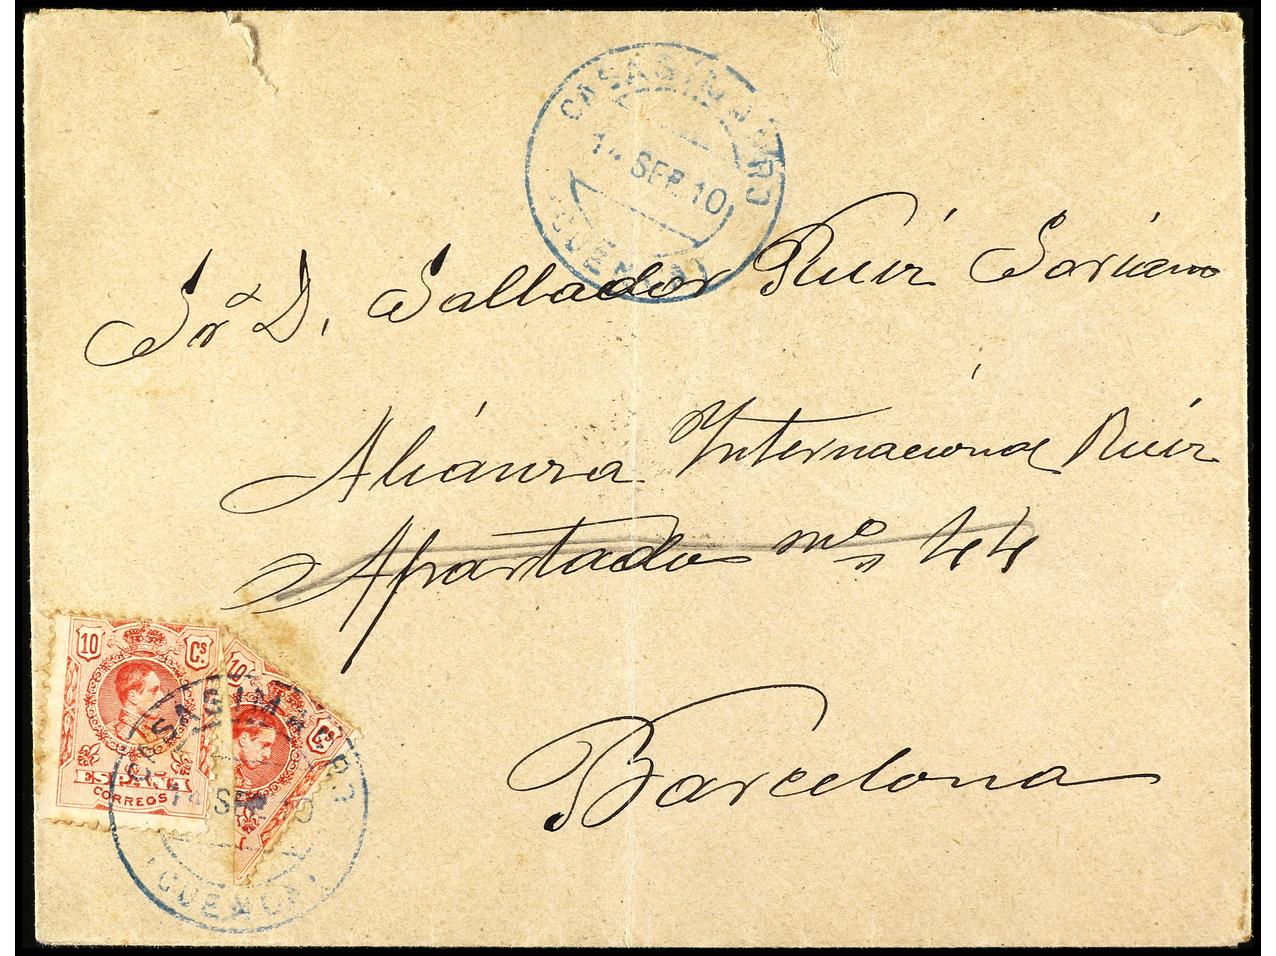 CASASIMARRO
14 SEP 10
(CUENCA)
Sr D. Sallbador Ruiz Soriano
Alianza Internacional Ruiz
Apartado nº 44
Barcelona
10 Cs.
ESPAÑA
CORREOS
10 Cs.
CASASIMARRO
14 SEP 10
(CUENCA)